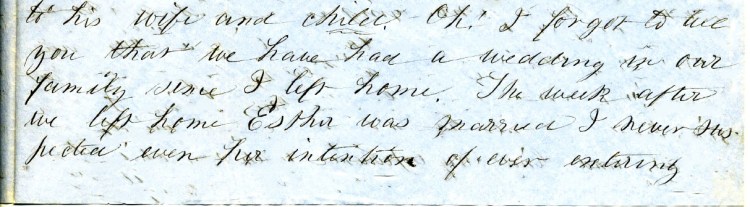 to his wife and child. Oh! I forgot to tell
you that we have had a wedding in our
family since I left home. The week after
we left home Esther was married I never sus-
pected even her intention of ever entering